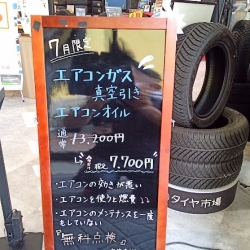 7月限定
エアコンガス
真空引き
エアコンオイル
通常 13,200円
税込 7,700円
・エアコンの効きが悪い
・エアコンを使うと燃費↓↓
・エアコンのメンテナンスを一度
もしていない
無料点検
タイヤ市場